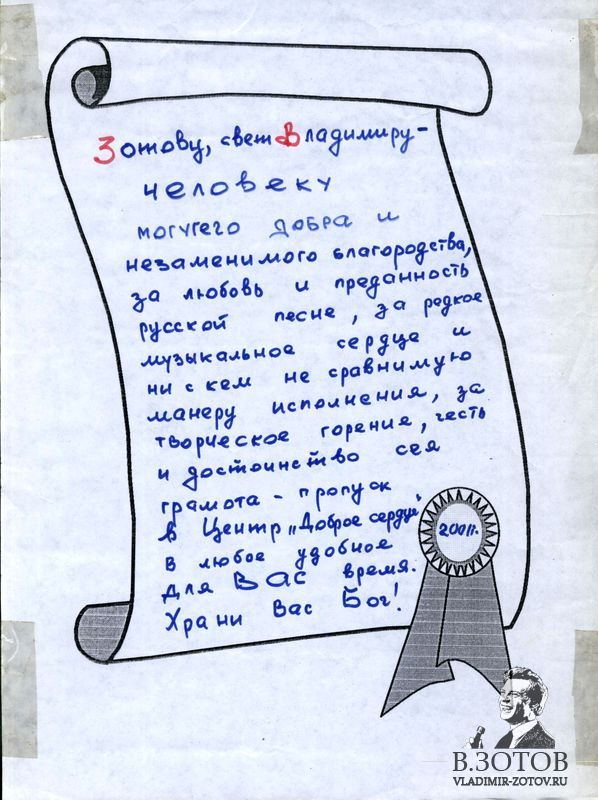 Зотову, свет Владимиру -
человеку
могучего добра и
незаменимого благородства,
за любовь и преданность
русской песне, за редкое
музыкальное сердце и
ни с кем не сравнимую
манеру исполнения, за
творческое горение, честь
и достоинство сея
грамота - пропуск
в Центр „Доброе сердце"
в любое удобное
для Вас время.
Храни Вас Бог!
2001г.
В.ЗОТОВ
VLADIMIR-ZOTOV.RU